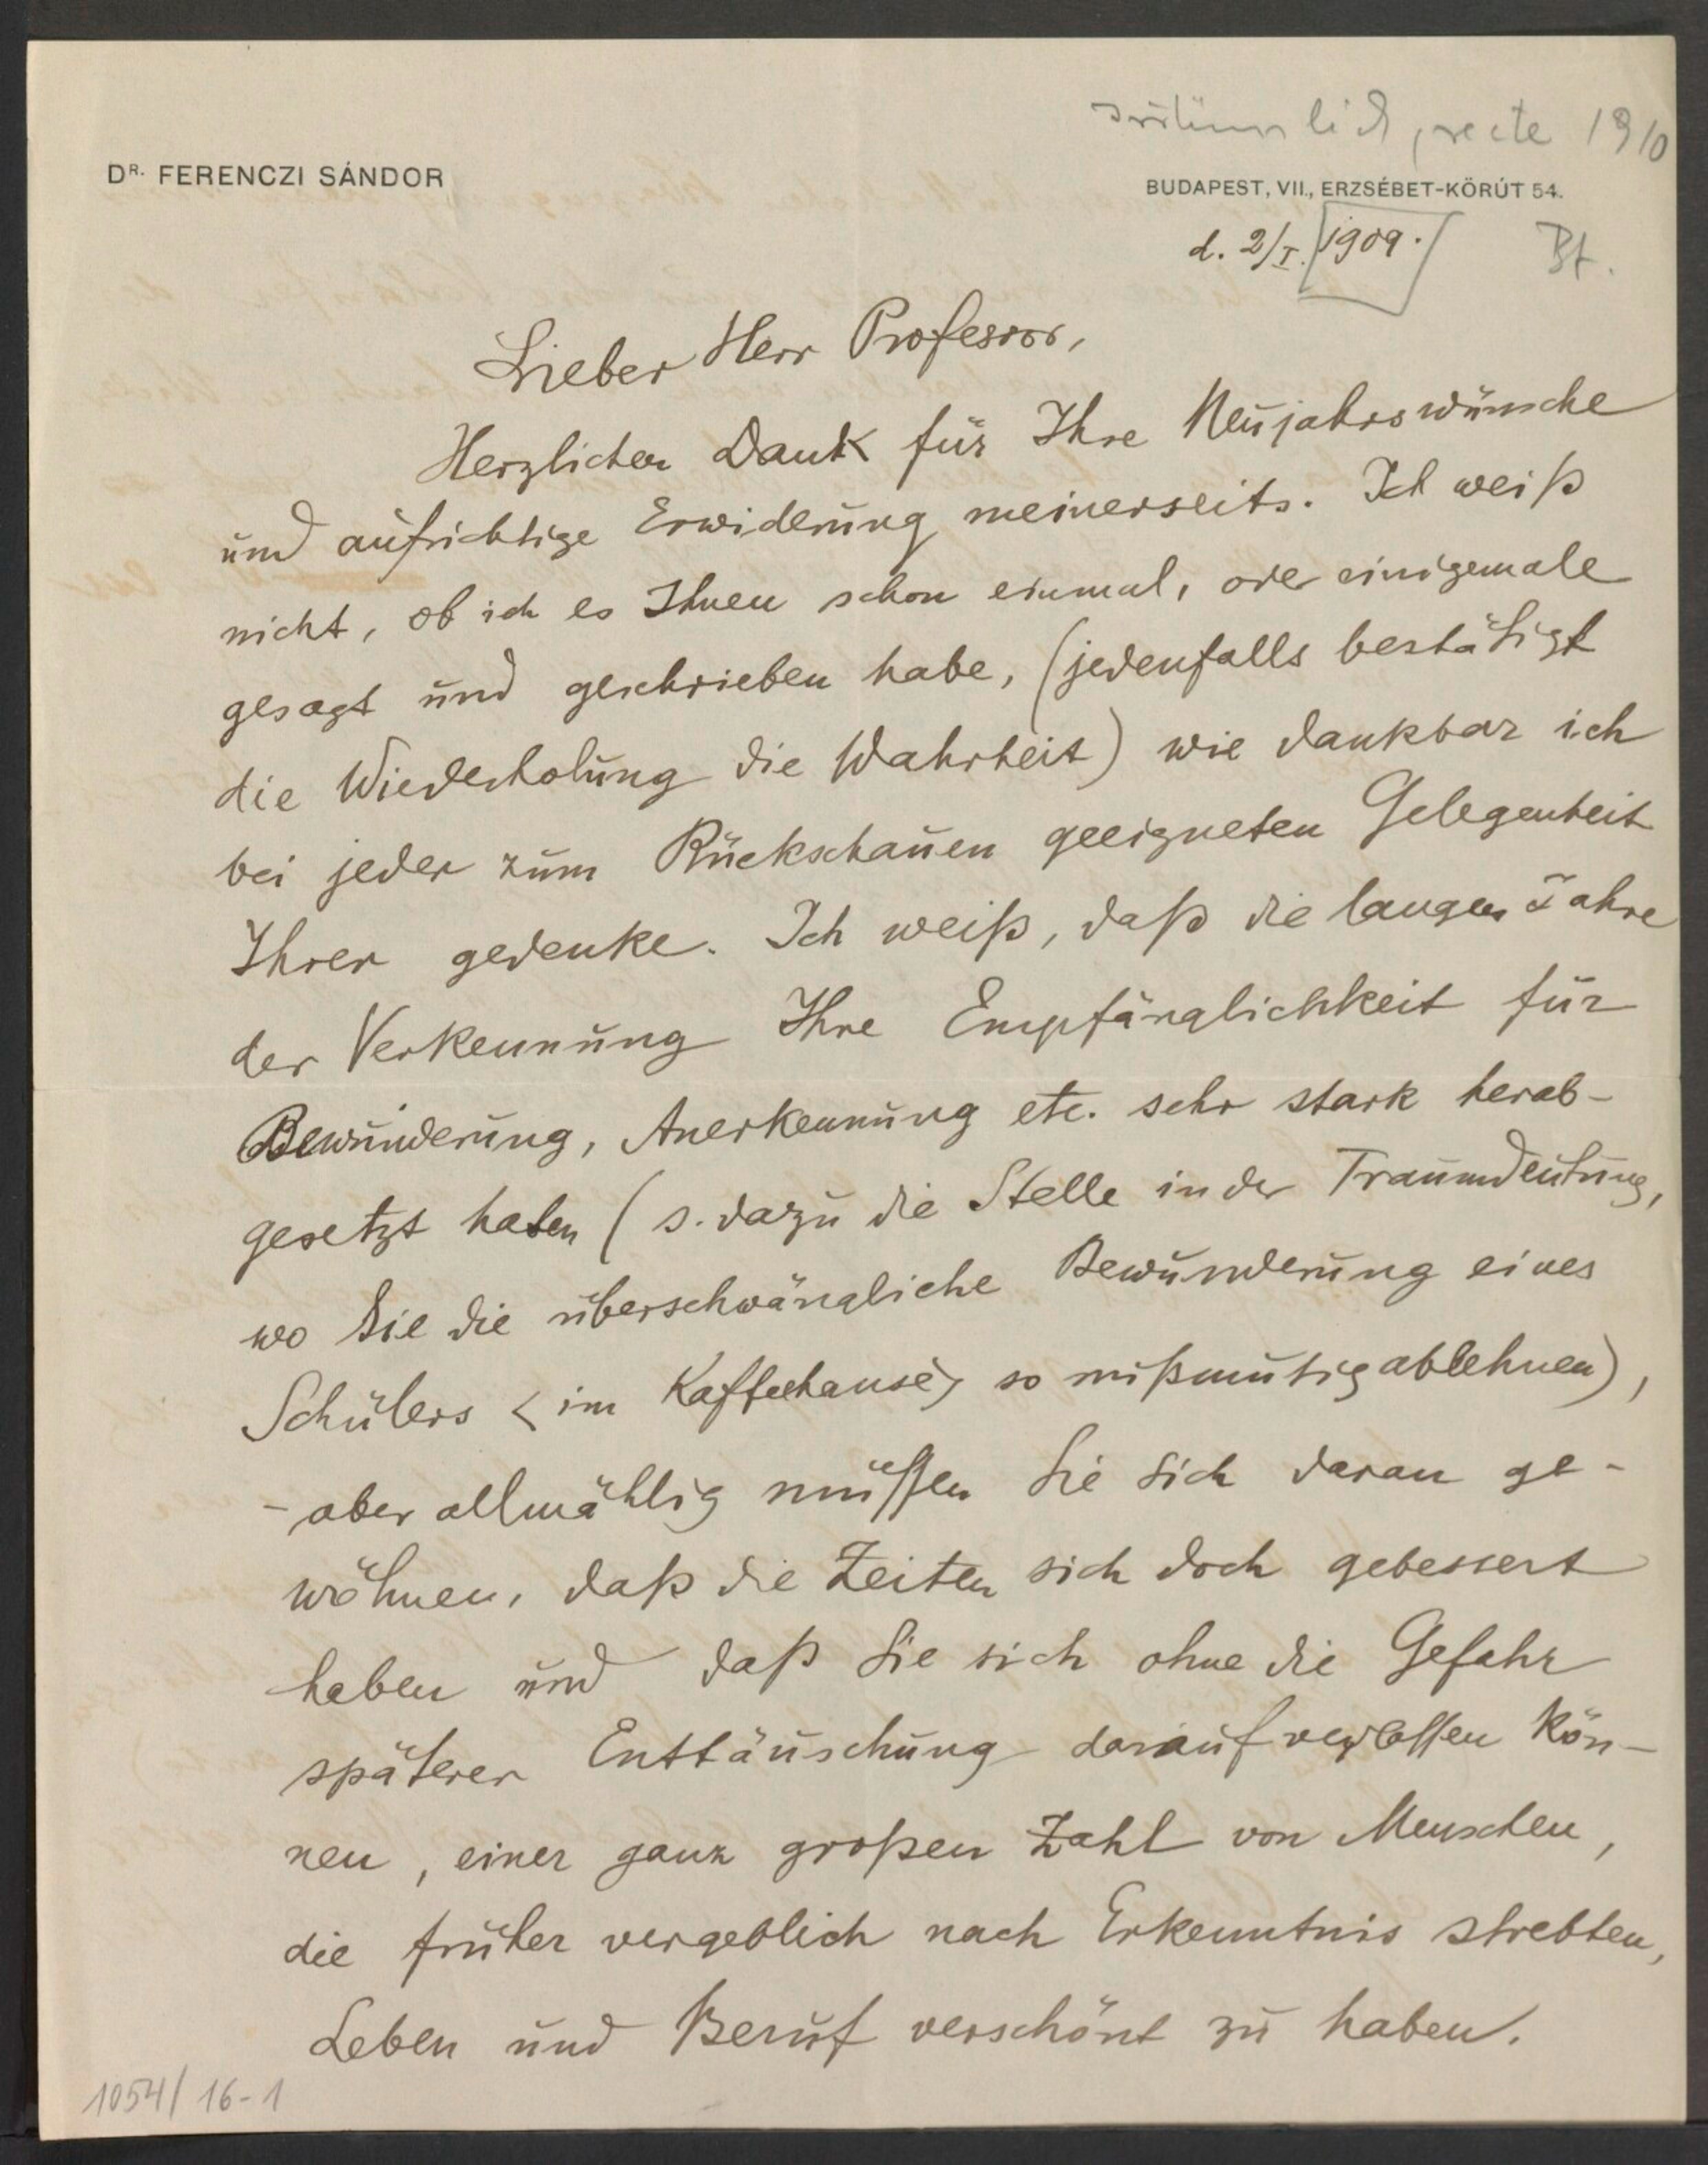 irrtümlich, recte 1910
DR. FERENCZI SÁNDOR
BUDAPEST, VII., ERZSÉBET-KÖRÚT 54.
d. 2/I. 1909.
Bt.
Lieber Herr Professor,
Herzlichen Dank für Ihre Neujahrswünsche
und aufrichtige Erwiderung meinerseits. Ich weiß
nicht, ob ich es Ihnen schon einmal, oder einigemale
gesagt und geschrieben habe, (jedenfalls bestätigt
die Wiederholung die Wahrheit) wie dankbar ich
bei jeder zum Rückschauen geeigneten Gelegenheit
Ihrer gedenke. Ich weiß, daß die langen Jahre
der Verkennung Ihre Empfänglichkeit für
Bewunderung, Anerkennung etc. sehr stark herab-
gesetzt haben (s. dazu die Stelle in der Traumdeutung,
wo Sie die überschwängliche Bewunderung eines
Schülers < im Kaffeehause > so mißmutig ablehnen),
- aber allmählig müssen Sie sich daran ge-
wöhnen, daß die Zeiten sich doch gebessert
haben und daß Sie sich ohne die Gefahr
späterer Enttäuschung darauf verlassen kön-
nen, einer ganz großen Zahl von Menschen,
die früher vergeblich nach Erkenntnis strebten,
Leben und Beruf verschönt zu haben.
1054/16-1